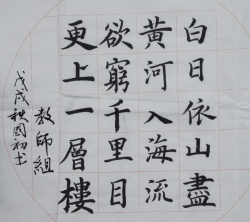 白日依山盡
黃河入海流
欲窮千里目
更上一層樓
教師組
戊戌秋國初書